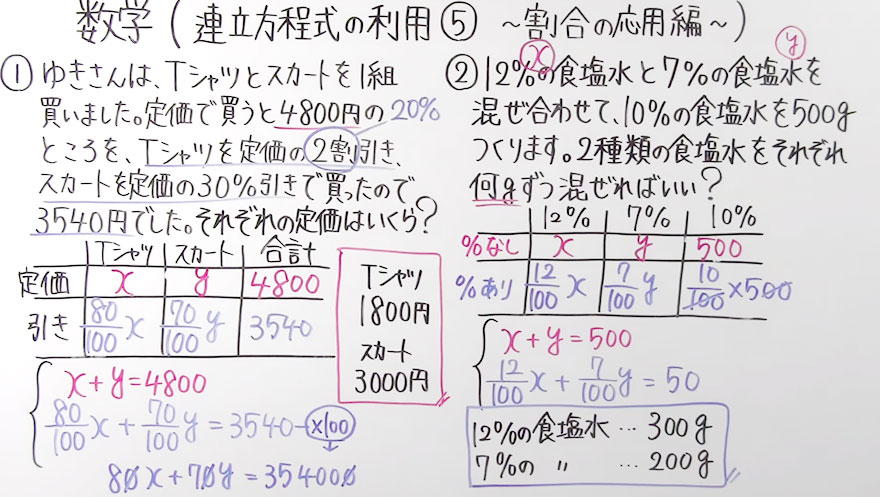 数学(連立方程式の利用⑤ ~割合の応用編~)
① ゆきさんは、Tシャツとスカートを1組
買いました。定価で買うと4800円の 20%
ところを、Tシャツを定価の2割引き、
スカートを定価の30%引きで買ったので
3540円でした。それぞれの定価はいくら?
Tシャツ スカート 合計
定価 x y 4800
引き 80/100 x 70/100 y 3540
x+y=4800
80/100 x + 70/100 y = 3540 ×100
80x+70y=354000
Tシャツ
1800円
スカート
3000円
x y
② 12%の食塩水と7%の食塩水を
混ぜ合わせて、10%の食塩水を500g
つくります。2種類の食塩水をそれぞれ
何gずつ混ぜればいい?
12% 7% 10%
%なし x y 500
%あり 12/100 x 7/100 y 10/100 ×500
x+y=500
12/100 x + 7/100 y = 50
12%の食塩水…300g
7%の 〃 …200g